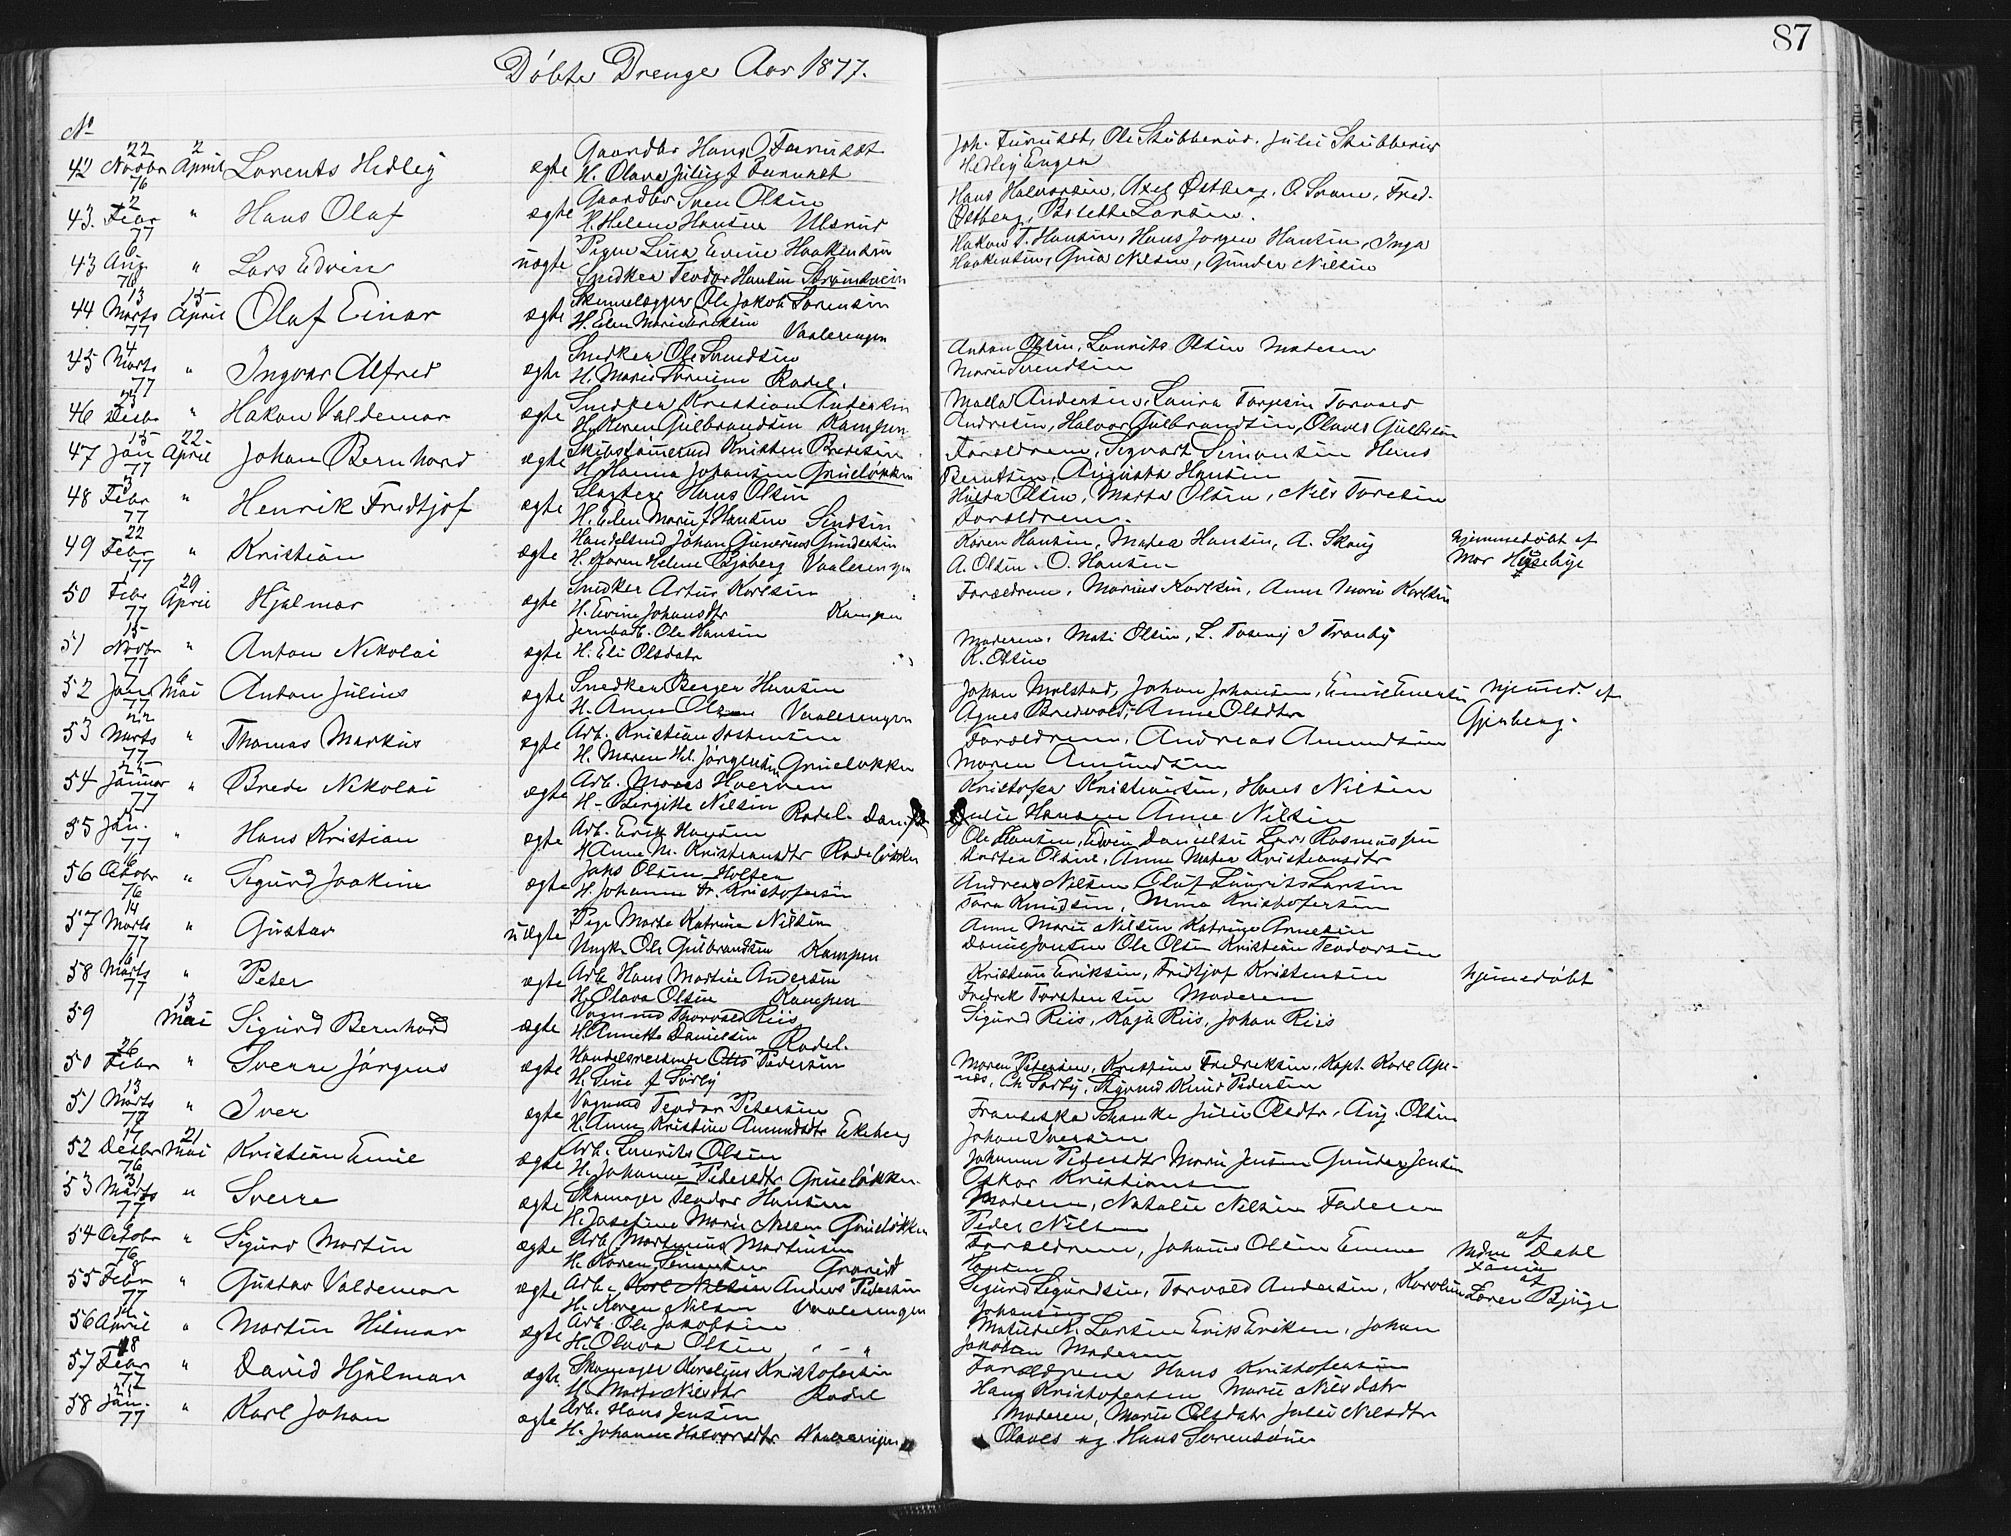 87
Døbte Drenge Aar 1877.
No
42 22 Novbr 76 2 April Lorents Hedley ægte Gaardbr Hans Furuset
H. Olava Julius f Furuset
Joh. Furuset, Ole Stubberud. Julie Stubberud
Hedley Engen
43. 2 Febr 77 " Hans Olaf ægte Gaardbr Sven Olsen
H. Helene Hansen Ulsrud
Hans Halvorsen, Axel Østberg, O. Svane, Fred.
Østberg, Bolette Larsen.
43 6 Aug. 76 " Lars Edvin uægte Pigen Lina Evine Haakensen
Snedker Teodor Hansen Strømsveien
Hakon T. Hansen, Hans Jørgen Hansen, Inga
Haakensen, Nilsen, Gunder Nilsen
44 13 Marts 77 15 April Olaf Einar ægte Ole Jakob Sørensen
H. Elen Marie Eriksen Vaalerengen
45 4 Marts 77 " Ingvar Alfred ægte Snedker Ole Svendsen
H. Marie Rodel.
Anton Olsen, Laurits Olsen Moderen
Marie Svendsen
46 23 Desbr " Hakon Valdemar ægte Snedker Kristian Andersen
H. Karen Gulbrandsen Kampen
Andersen, Laura Torvald
Andresen, Halvor Gulbrandsen, Olaves
47 15 Jan 77 22 April Johan Bernhard ægte Kristen Bredesen
H. Hanna Johansen Grueløkken
Forældrene, Sigvart Simonsen Hans
Berntsen, Augusta Hansen
48 3 Febr 77 " Henrik Fredtjof ægte Slagter Hans Olsen
H. Elen Marie f Hansen
Hulda Olsen, Marta Olsen, Nils
Forældrene.
49 22 Febr 77 " Kristian ægte Handelsmd Johan Gunerius Gundersen
H. Karen Helene Sjøberg Vaalerengen
Karen Hansen, Matea Hansen, A. Skoug
A. Olsen. O. Hansen
hjemmedøbt af
Mor Huseby
50 Febr 77 29 April Hjalmar ægte Snedker Artur Karlsen
H. Evine Johansdtr Kampen
Forældrene, Marius Karlsen, Anne Marie Karlsen
51 15 Novbr 77 " Anton Nikolai ægte Jernbarb. Ole Hansen
H. Eli Olsdatr
Moderen. Mati Olsen, L. J Tranby
K. Olsen
52 7 Jan 77 6 Mai Anton Julius ægte Snedker Berger Hansen
H. Anne Olsen Vaalerengen
Johan Molstad, Johan Johansen,
Agnes Anne Olsdtr
hjemmed. af
Gjerberg.
53 22 Marts 77 " Thomas Markus ægte Arb. Kristian
H. Maren Hel. Jørgensen Grueløkken
Forældrene, Andreas Amundsen
Maren Amundsen
54 25 Januar 77 " Brede Nikolai ægte Arb.
H. Birgitte Nilsen Rodel.
Kristofer Kristiansen, Hans Nilsen
Julie Hansen Anne Nilsen
55 Jan. 77 " Hans Kristian ægte Arb. Erik Hansen
H Anne M. Kristiansdtr Rodeløkken
Ole Hansen, Edvin Danielsen Lars Rasmussen
Olsen, Anne Matea Kristiansdtr
56 16 Octobr 76 " Sigurd Joakim ægte Jaks Olsen Holter
H. Johanne Kristofersen
Andreas Nilsen Oluf Laurits Larsen
Knudsen, Mina Kristofersen
57 14 Marts 77 " Gustav uægte Pige Marte Katrine Nilsen
Ungk. Ole Gulbrandsen Kampen
Anne Marie Nilsen Katrine Arnesen
Ole Olsen Kristian Teodorsen
58 6 Marts 77 " Peter ægte Arb. Hans Martin Andersen
H. Olava Olsen Kampen
Kristian Eriksen, Fridtjof Kristensen
Fredrik Torstensen Moderen
hjemedøbt
59 13 Mai Sigurd Bernhard ægte Vognmd Thorvald Riis
H. Annette Danielsen Rodel.
Sigurd Riis, Kaja Riis, Johan Riis
50 26 Febr " Sverre Jørgens ægte Handelsreisende Otto Pedersen
H. Line f Sørby
Maren Petersen, Kristine Fredriksen, Kapt. Karl
Ch Sørby, Sigvard Knud Pedersen
51 13 Marts 77 " Iver ægte Vognmd Teodor Petersen
H. Anne Kristine Amundsdtr Ekeberg
Franseska Schanke Julie Olsdtr, Aug. Olsen
Johan Iversen
52 17 Desbr 76 21 Mai Kristian Emil ægte Arb. Laurits Olsen
H. Johanne Pedersdtr Grueløkken
Johanne Pedersdtr Marie Jensen Gunder Jensen
Oskar Kristiansen
53 31 Marts 77 " Sverre ægte Skomager Teodor Hansen
H. Josefine Marie Nilsen Grueløkken
Moderen, Natalie Nilsen Faderen
Peder Nilsen
54 6 Octobr 76 " Sigurd Martin ægte Arb. Martinius Martinsen
H. Karen Simensen
Forældrene, Johanes Olsen Emma
Hansen
af
Mdm Dahl
55 8 Febr 77 " Gustav Valdemar ægte Arb. Karl Nilsen Anders Pedersen
H. Karen Nilsen Vaalerengen
Sigurd Sigurdsen, Torvald Andersen, Karoline
Johansen
af
Bjurge
56 4 April " Martin Hilmar ægte Arb. Ole Jakobsen
H. Olava Olsen " - "
Matilde K. Larsen Erik Eriksen, Johan
Jakobsen Moderen
57 18 Febr 77 " David Hjalmar ægte Skomager Karelius Kristofersen
H. Marte Nilsdtr Rodel
Forældrene Hans Kristofersen
Hans Kristofersen Marie Nilsdatr
58 21 Jan. 77 " Karl Johan ægte Arb. Hans Jensen
H. Johanne Halvorsdtr Vaalerengen
Moderen, Marie Olsdatr Julie Nilsdtr
Olaves og Hans Sørensøn